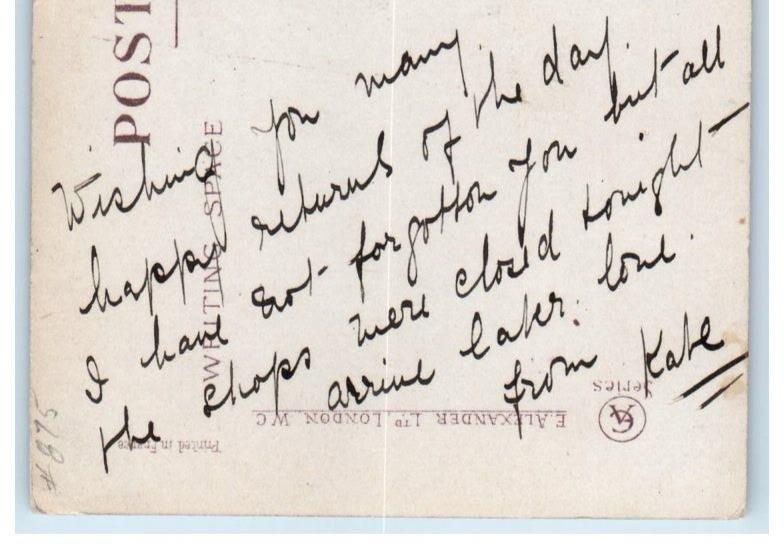 POST
WRITING SPACE
Wishing you many
happy returns of the day.
I have not forgotton you but all
the shops were closed tonight
arrive later. love.
from Kate
Printed in France
E. ALEXANDER LTD LONDON. W.C
Series
# 875